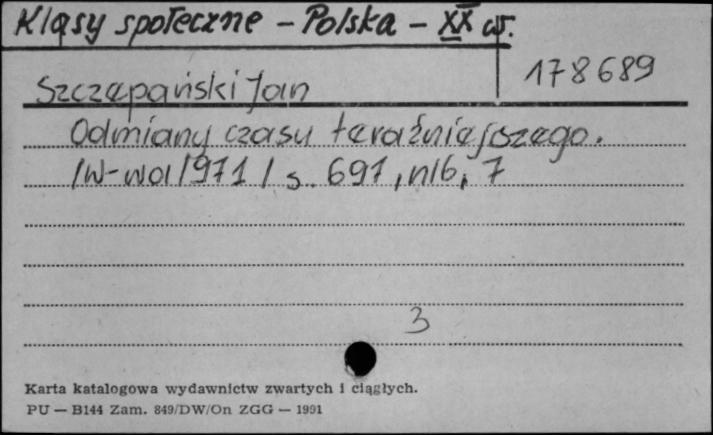 Klasy społeczne – Polska – XX w.
178689
Szczepański Jan
Odmiany czasu teraźniejszego.
/W-wa/1971/ s. 691, nlb, 7
3
Karta katalogowa wydawnictw zwartych i ciągłych.
PU — B144 Zam. 849/DW/On ZGG — 1991